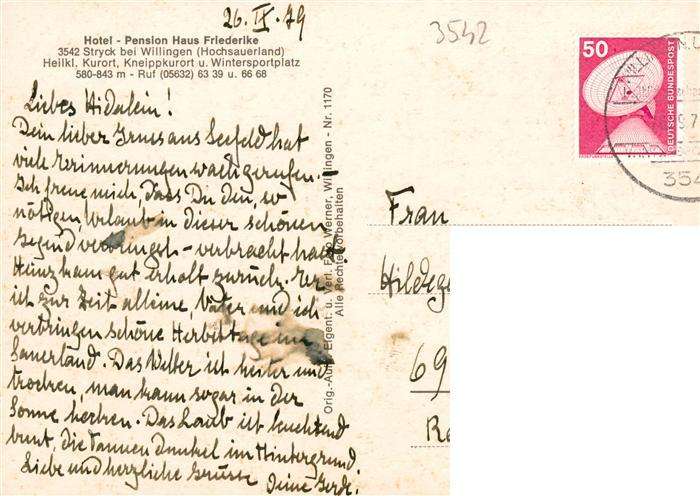 26. IX. 79
3542
Hotel - Pension Haus Friederike
3542 Stryck bei Willingen (Hochsauerland)
Heilkl. Kurort, Kneippkurort u. Wintersportplatz
580-843 m - Ruf (05632) 63 39 u. 66 68
Liebes Hidalein!
Dein lieber Gruss aus Seefeld hat
viele Erinnerungen wachgerufen. –
Ich freue mich, dass Du den, so
nötigen, Urlaub in dieser schönen
Gegend verbringst – verbracht hast.
Heinz kam gut erholt zurück. Er
ist zur Zeit alleine, Vater und ich
verbringen schöne Herbsttage im
Sauerland. Das Wetter ist heiter und
trocken, man kann sogar in der
Sonne hocken. Das Laub ist leuchtend
bunt, die Tannen dunkel im Hintergrund.
Liebe und herzliche Grüsse Deine Gerda.
Orig.-Aufn. Eigent. u. Verl. Foto Werner, Willingen - Nr. 1170
Alle Rechte vorbehalten
50
DEUTSCHE BUNDESPOST
354
Frau
Hildeg
69